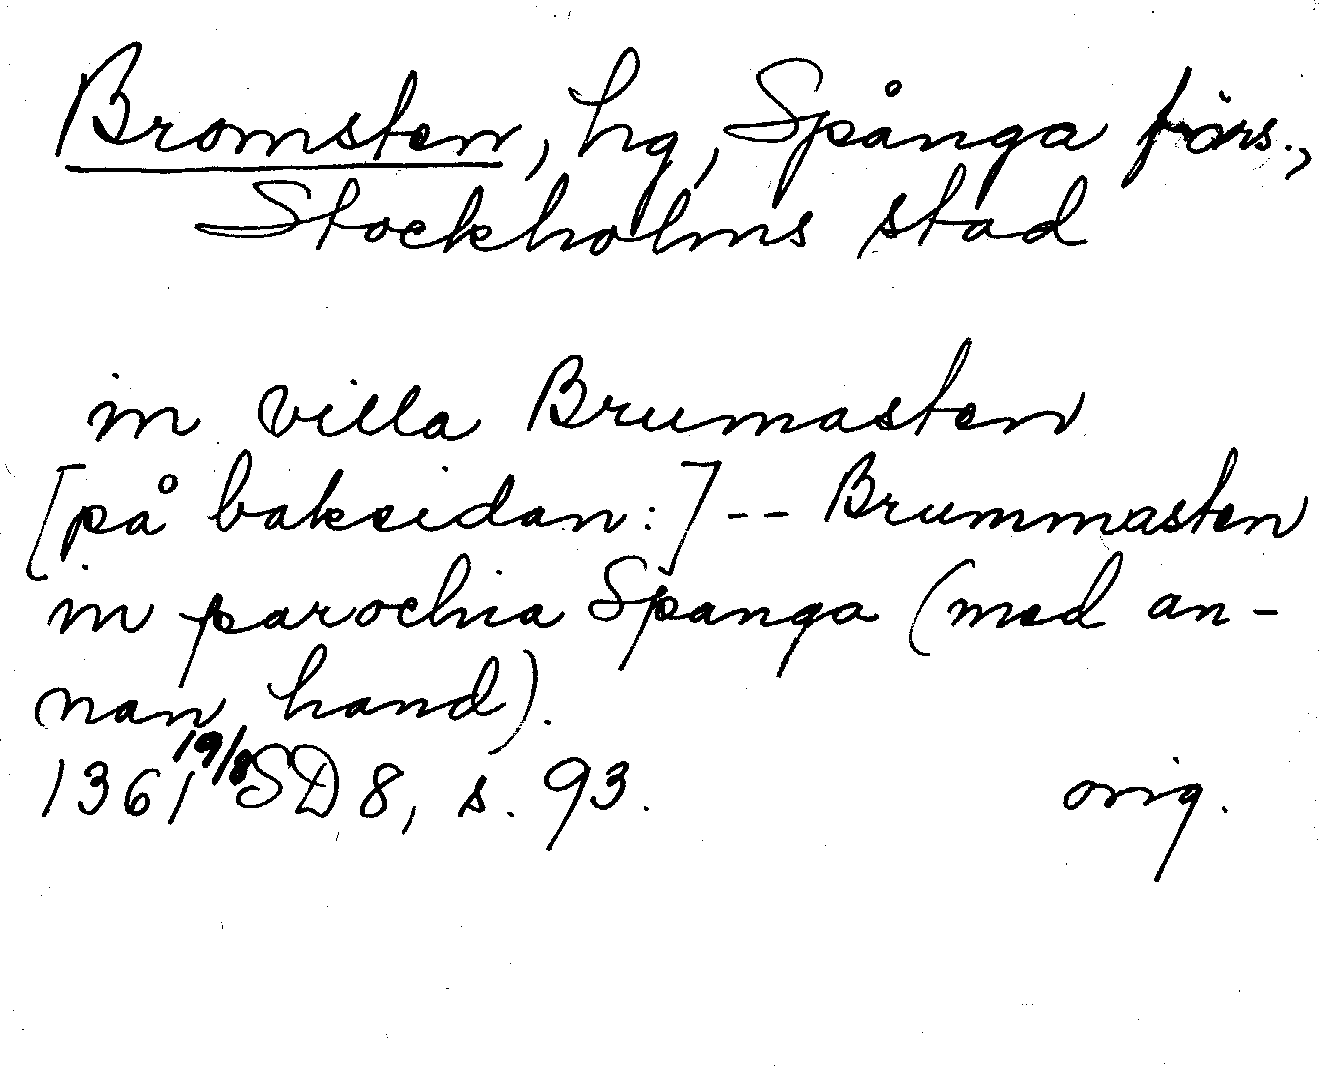 Bromsten, hg, Spånga förs.,
Stockholms stad
in villa Brumasten
[på baksidan:] -- Brummasten
in parochia Spanga (med an-
nan hand).
1361 19/8 SD 8, s. 93. orig.